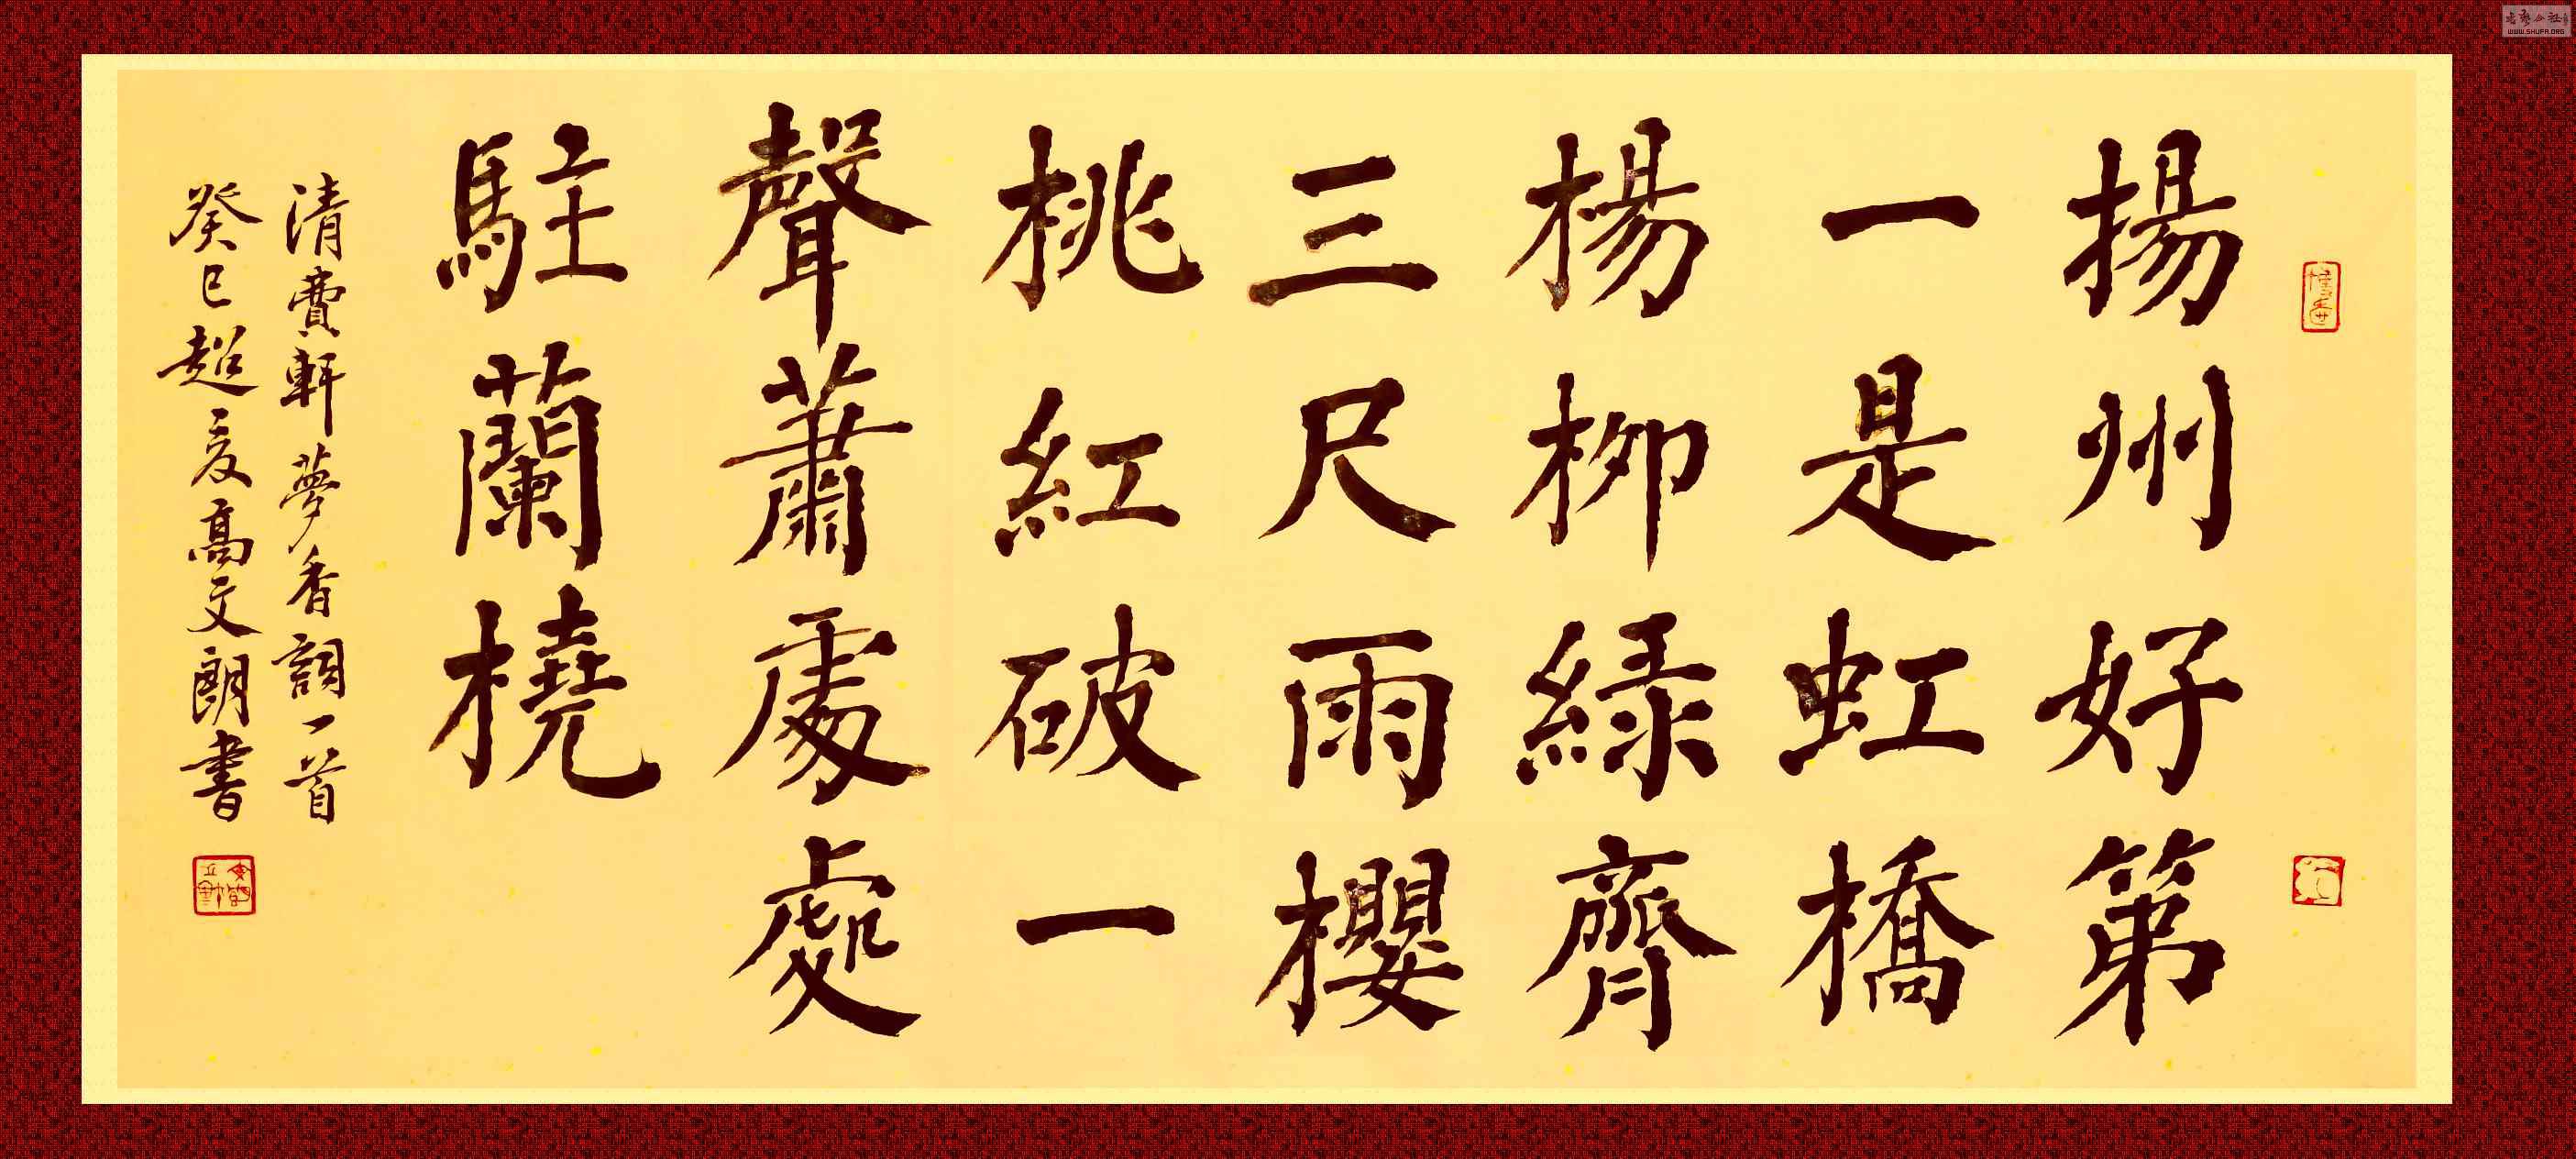 揚州好第
一是虹橋
楊柳綠齊
三尺雨櫻
桃紅破一
聲蕭處處
駐蘭橈
清費軒夢香詞一首
癸巳超爰高文朗書
WWW.SHUFA.ORG